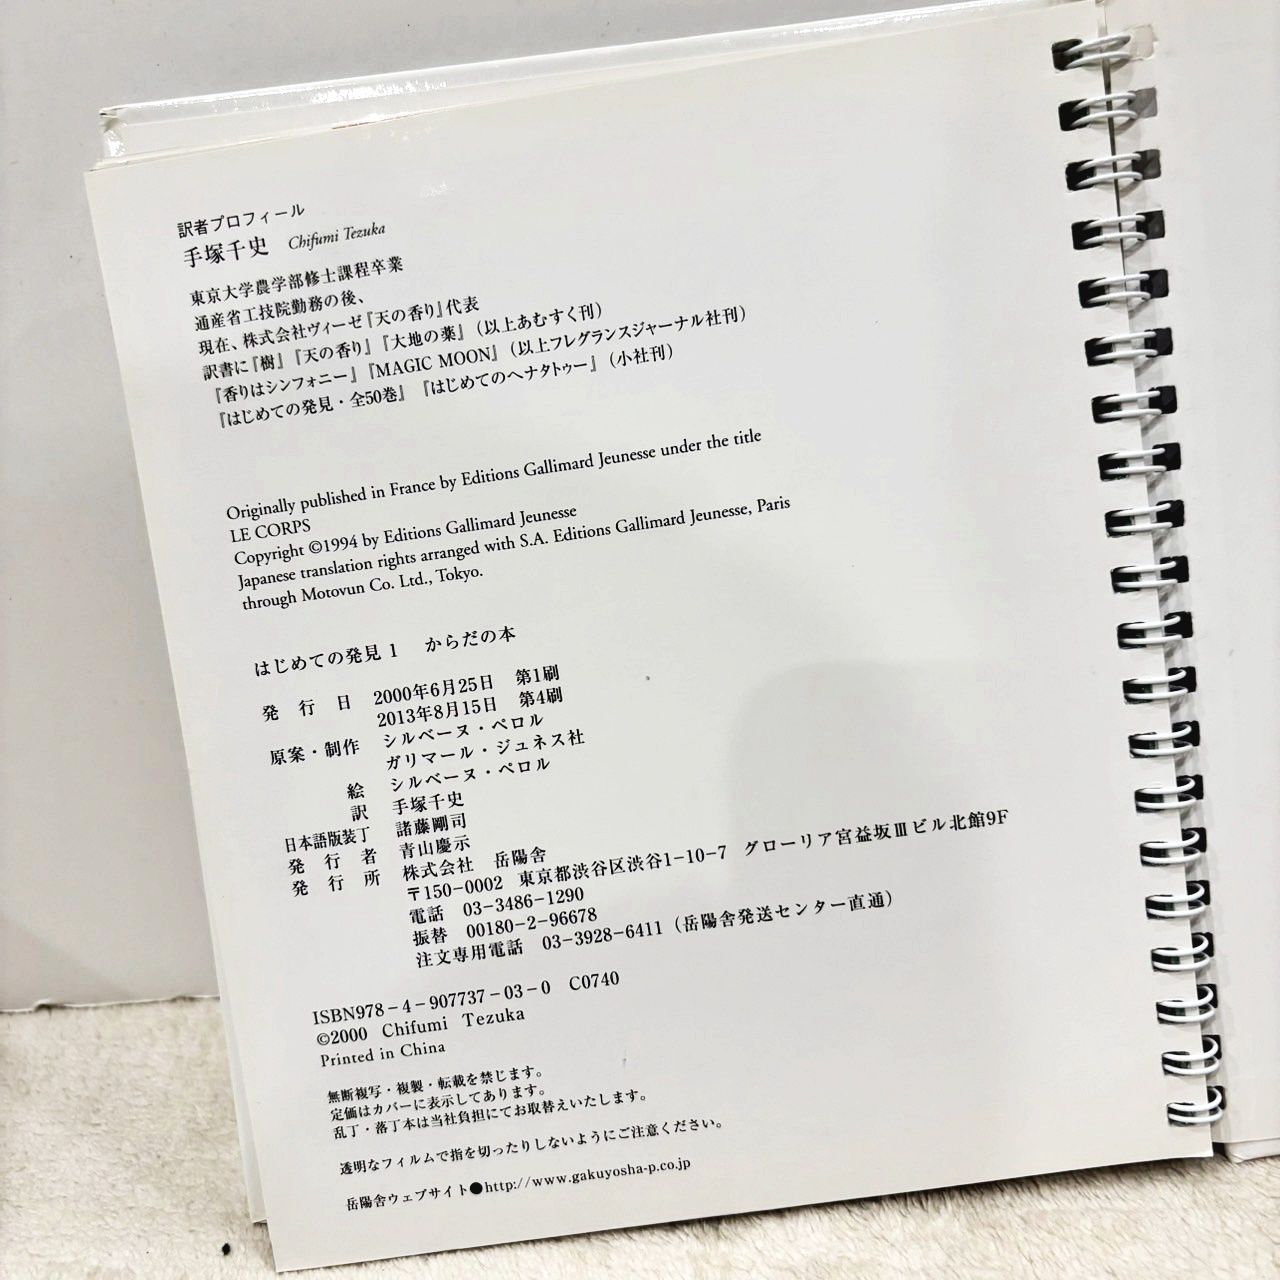 訳者プロフィール
手塚千史 Chifumi Tezuka
東京大学農学部修士課程卒業
通産省工技院勤務の後、
現在、株式会社ヴィーゼ『天の香り』代表
訳書に『樹』『天の香り』『大地の薬』（以上あむすく刊）
『香りはシンフォニー』『MAGIC MOON』（以上フレグランスジャーナル社刊）
『はじめての発見・全50巻』『はじめてのヘナタトゥー』（小社刊）
Originally published in France by Editions Gallimard Jeunesse under the title
LE CORPS
Copyright ©1994 by Editions Gallimard Jeunesse
Japanese translation rights arranged with S.A. Editions Gallimard Jeunesse, Paris
through Motovun Co. Ltd., Tokyo.
はじめての発見 1 からだの本
発行日 2000年6月25日 第1刷
2013年8月15日 第4刷
原案・制作 シルベーヌ・ペロル
ガリマール・ジュネス社
絵 シルベーヌ・ペロル
訳 手塚千史
日本語版装丁 諸藤剛司
発行者 青山慶示
発行所 株式会社 岳陽舎
〒150-0002 東京都渋谷区渋谷1-10-7 グローリア宮益坂Ⅲビル北館9F
電話 03-3486-1290
振替 00180-2-96678
注文専用電話 03-3928-6411（岳陽舎発送センター直通）
ISBN978-4-907737-03-0 C0740
©2000 Chifumi Tezuka
Printed in China
無断複写・複製・転載を禁じます。
定価はカバーに表示してあります。
乱丁・落丁本は当社負担にてお取替えいたします。
透明なフィルムで指を切ったりしないようにご注意ください。
岳陽舎ウェブサイト●http://www.gakuyosha-p.co.jp